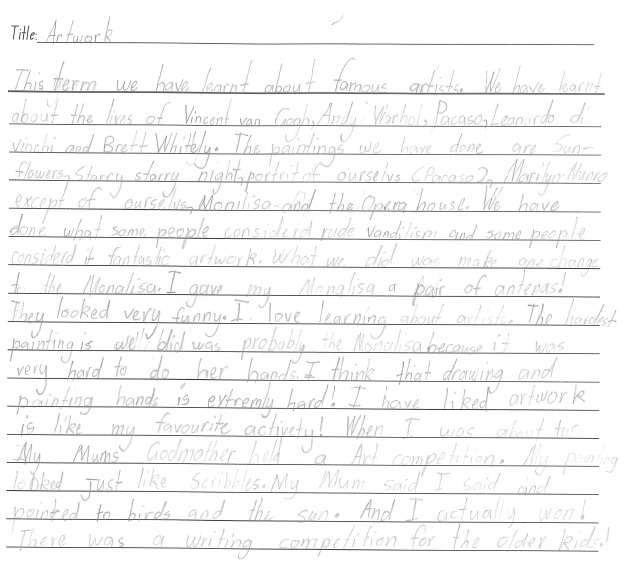 Title: Artwork
This term we have learnt about famous artists. We have learnt
about the lives of Vincent van Gogh, Andy Warhol, Pacaso, Leanardo di
vinchi and Brett Whittely. The paintings we have done are Sun-
flowers, Starry starry night, portrit of ourselvs (Pacaso), Marilyn Munro
except of ourselvs, Monilisa and the Opera house. We have
done what some people considerd rude vandilism and some people
considerd it fantastic artwork. What we did was make one change
to the Monalisa. I gave my Monalisa a pair of antenas!
They looked very funny. I love learning about artists. The hardest
painting is we did was probably the Monalisa because it was
very hard to do her hands. I think that drawing and
painting hands is extremly hard! I have liked artwork
is like my favourite activety! When I was about
My Mums Godmother held a Art competition. My painting
looked just like scribbles. My Mum said I said and
pointed to birds and the sun. And I actually won!
There was a writing competition for the older kids!